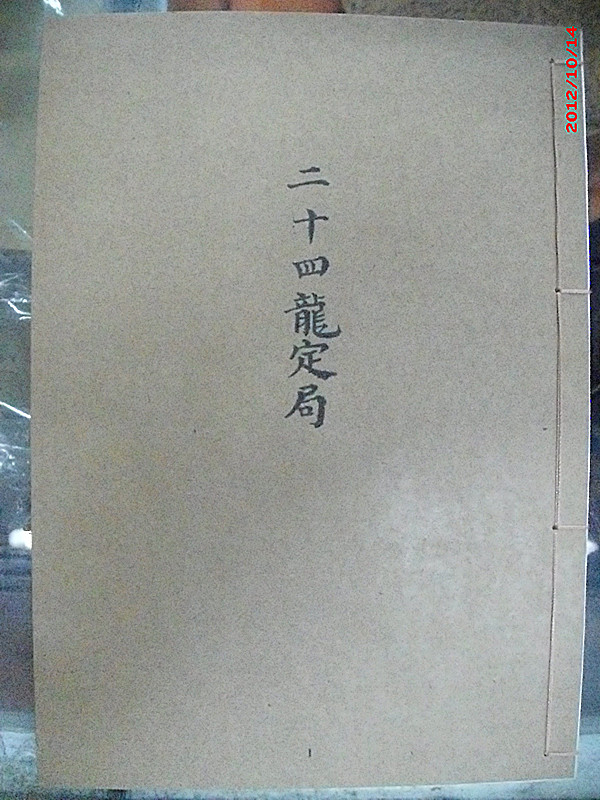 二十四龍定局
2012/10/14